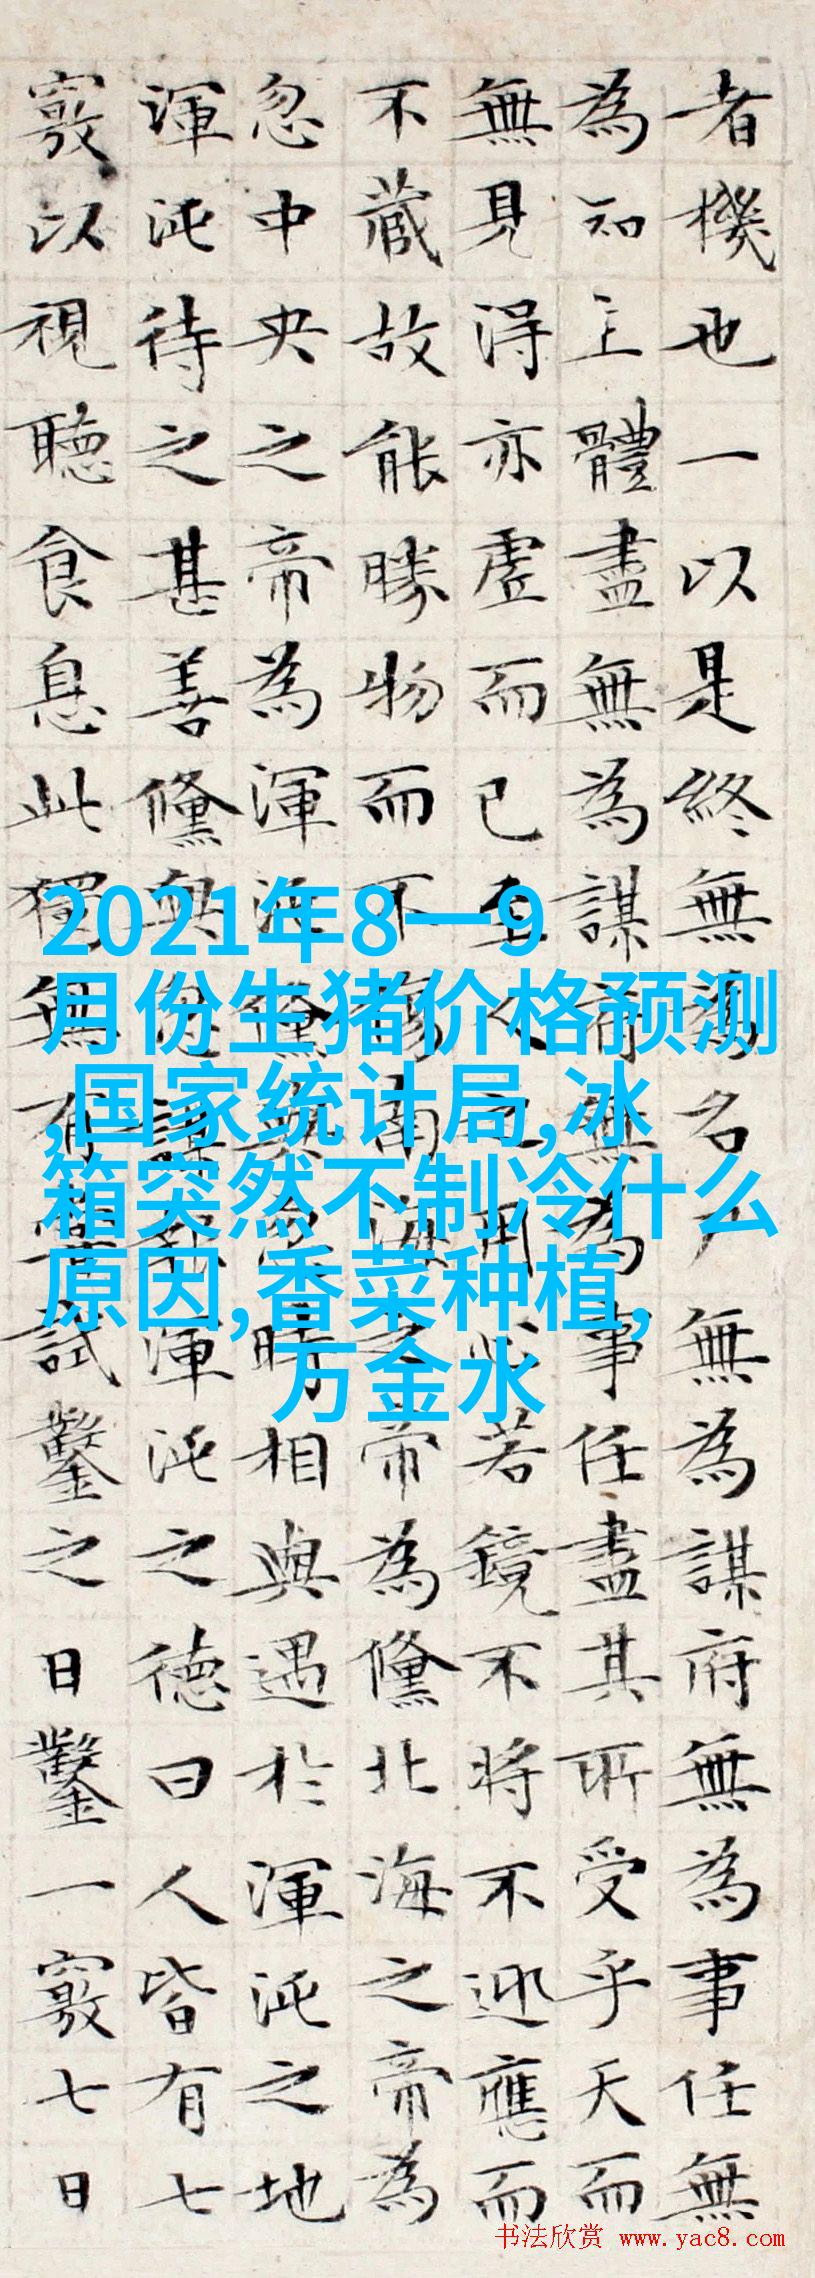 者機也一以是終無為名尸無為謀府無為事任無
為知主體盡無為謀府無為事任盡其所受乎天而
無見得亦虛而已至人之用心若鏡不將不迎應而
不藏故能勝物而不傷南海之帝為儵北海之帝為
忽中央之帝為渾沌儵與忽時相與遇於渾沌之地
渾沌待之甚善儵與忽謀報渾沌之德曰人皆有七
竅以視聽食息此獨無有嘗試鑿之日鑿一竅七日
2021年8一9
月份生猪价格预测
,国家统计局,冰
箱突然不制冷什么
原因,香菜种植,
万金水
书法欣赏 www.yac8.com